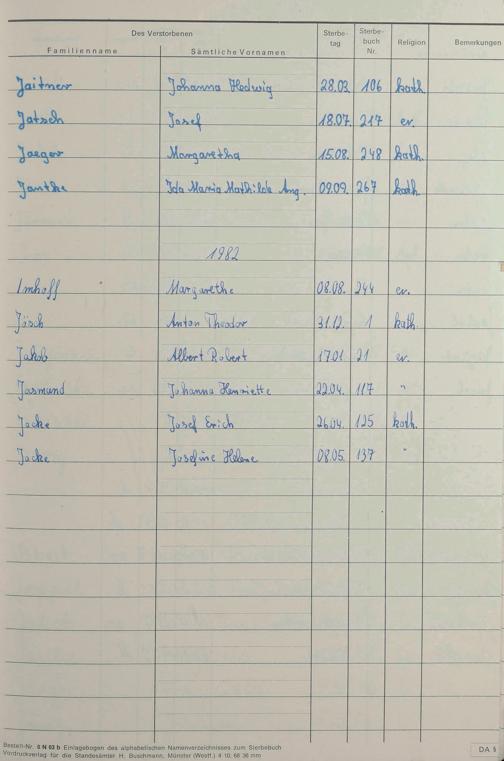 Des Verstorbenen
Familienname Sämtliche Vornamen Sterbe-tag Sterbe-buch Nr. Religion Bemerkungen
Jaitner Johanna Hedwig 28.03. 106 kath.
Jatsch Josef 18.07. 217 ev.
Jaeger Margaretha 15.08. 248 kath.
Janthe Ida Maria Mathilde Ang. 09.09. 267 kath.
1982
Imhoff Margarethe 08.08. 244 ev.
Jösch Anton Theodor 31.12. 1 kath.
Jakob Albert Robert 17.01 21 ev.
Jasmund Johanna Henriette 22.04. 117 "
Jacke Josef Erich 26.04. 125 kath.
Jacke Josefine Helene 08.05. 137 "
Bestell-Nr. 6 N 03 b Einlagebogen des alphabetischen Namenverzeichnisses zum Sterbebuch
Vordruckverlag für die Standesämter H. Buschmann, Münster (Westf.) 4 10. 68 36 mm
DA 5